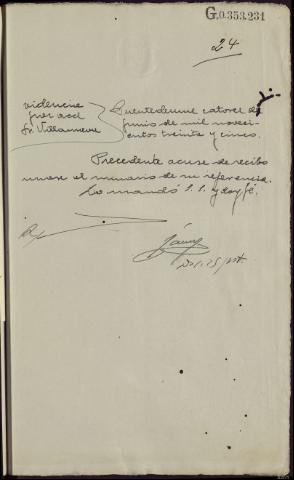 G.0.353.231
24
videncia
por accl
Sr. Villanueva
catorce de
junio de mil noveci-
entos treinta y cinco.
Precedente acuse de recibo
unase al sumario de su referencia.
Lo mandó S. S. y doy fé.